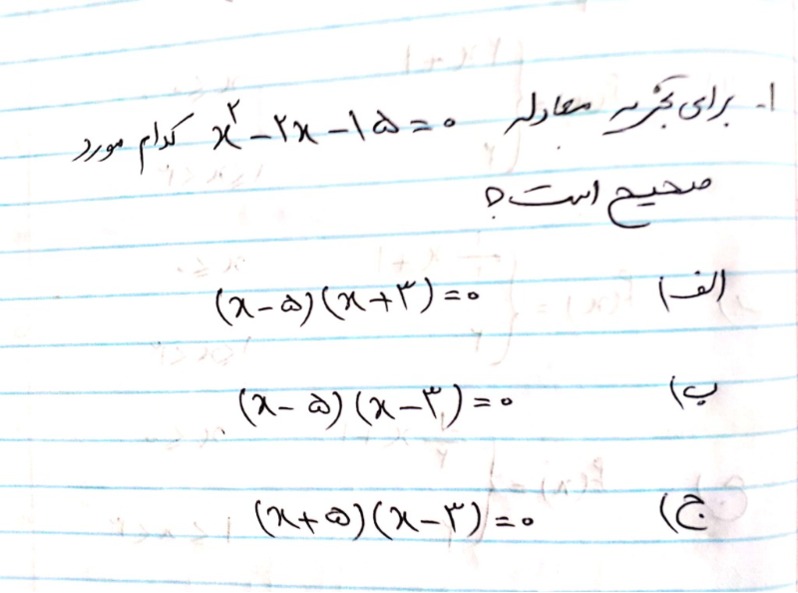 ۱- برای تجزیه معادله x² - ۲x - ۱۵ = ۰ کدام مورد
صحیح است؟
الف) (x - ۵)(x + ۳) = ۰
ب) (x - ۵)(x - ۳) = ۰
ج) (x + ۵)(x - ۳) = ۰